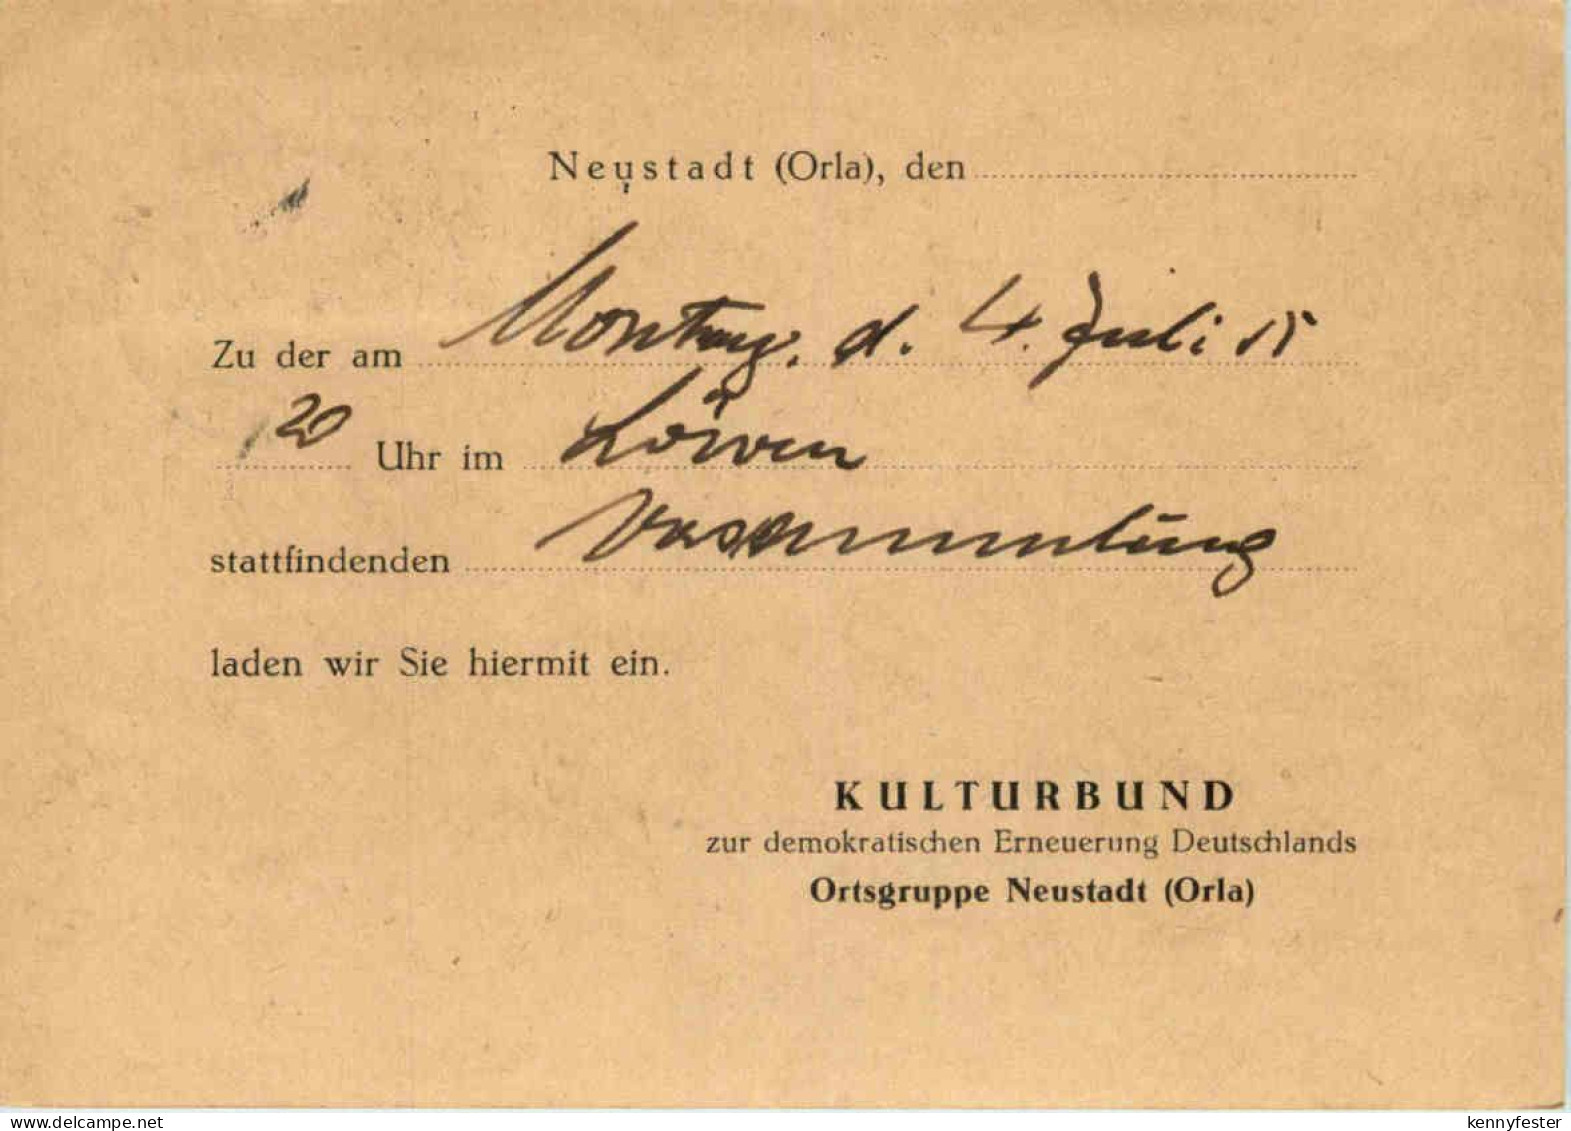 Neustadt (Orla), den
Zu der am Montag, d. 4. Juli
20 Uhr im Löwen
stattfindenden Versammlung
laden wir Sie hiermit ein.
KULTURBUND
zur demokratischen Erneuerung Deutschlands
Ortsgruppe Neustadt (Orla)
www.delcampe.net
kennyfester